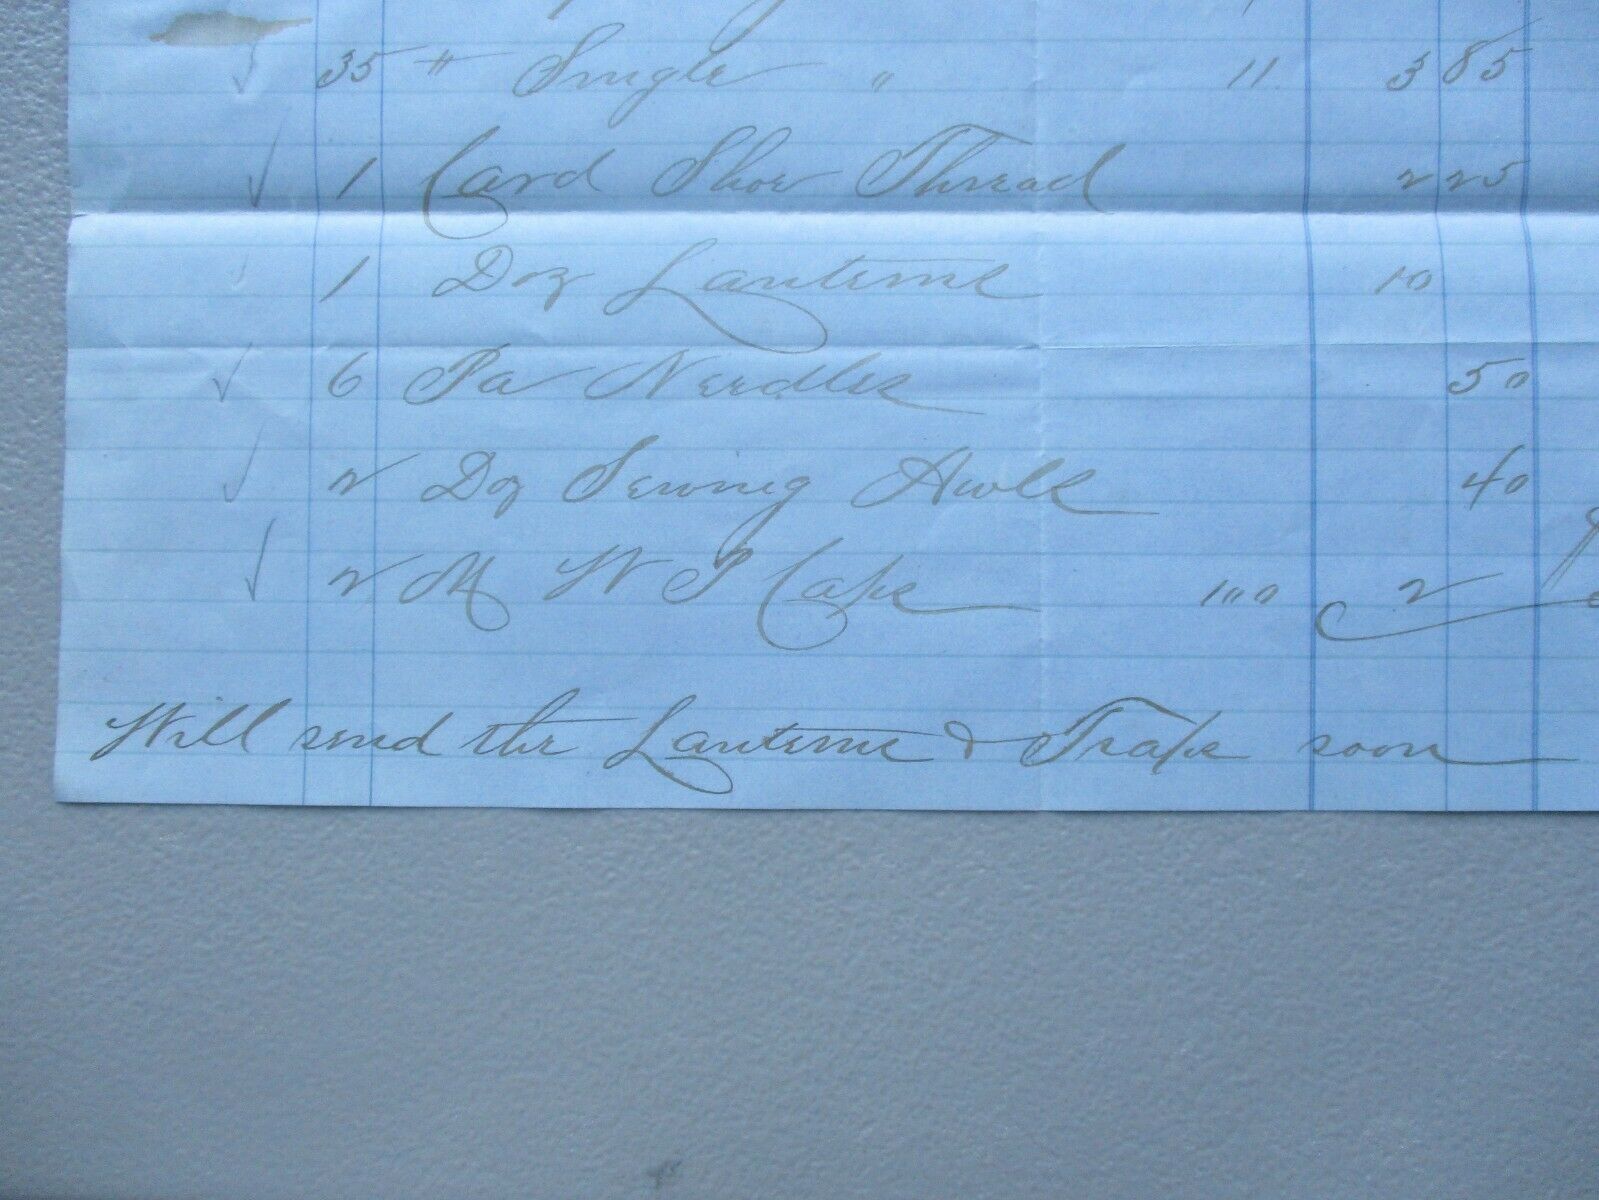 35 " Single " 11 3 85
1 Card Shoe Thread 2 25
1 Doz Lanterns 10
6 Pa Needles 50
2 Doz Sewing Awls 40
2 M W P Caps 100 2
Will send the Lanterns & Traps soon